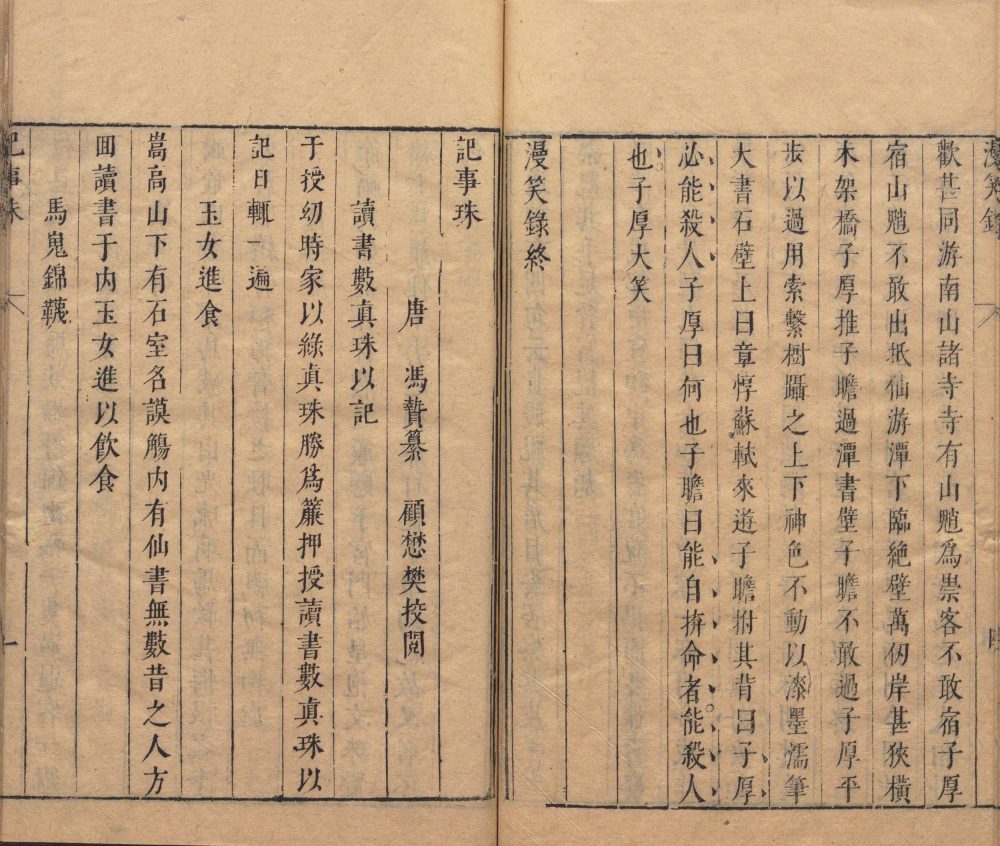 漫笑錄
歡甚同游南山諸寺寺有山魈爲祟客不敢宿子厚
宿山魈不敢出抵仙游潭下臨絶壁萬仞岸甚狹橫
木架橋子厚推子瞻過潭書壁子瞻不敢過子厚平
步以過用索繫樹躡之上下神色不動以漆墨濡筆
大書石壁上曰章惇蘇軾來遊子瞻拊其背曰子厚
必能殺人子厚曰何也子瞻曰能自拚命者能殺人
也子厚大笑
漫笑錄終
記事珠
唐 馮贄纂 顧懋樊挍閱
讀書數眞珠以記
于授幼時家以綠眞珠勝爲簾押授讀書數眞珠以
記日輒一遍
玉女進食
嵩高山下有石室名謨觴内有仙書無數昔之人方
囬讀書于内玉女進以飲食
馬嵬錦襪
記事珠
一